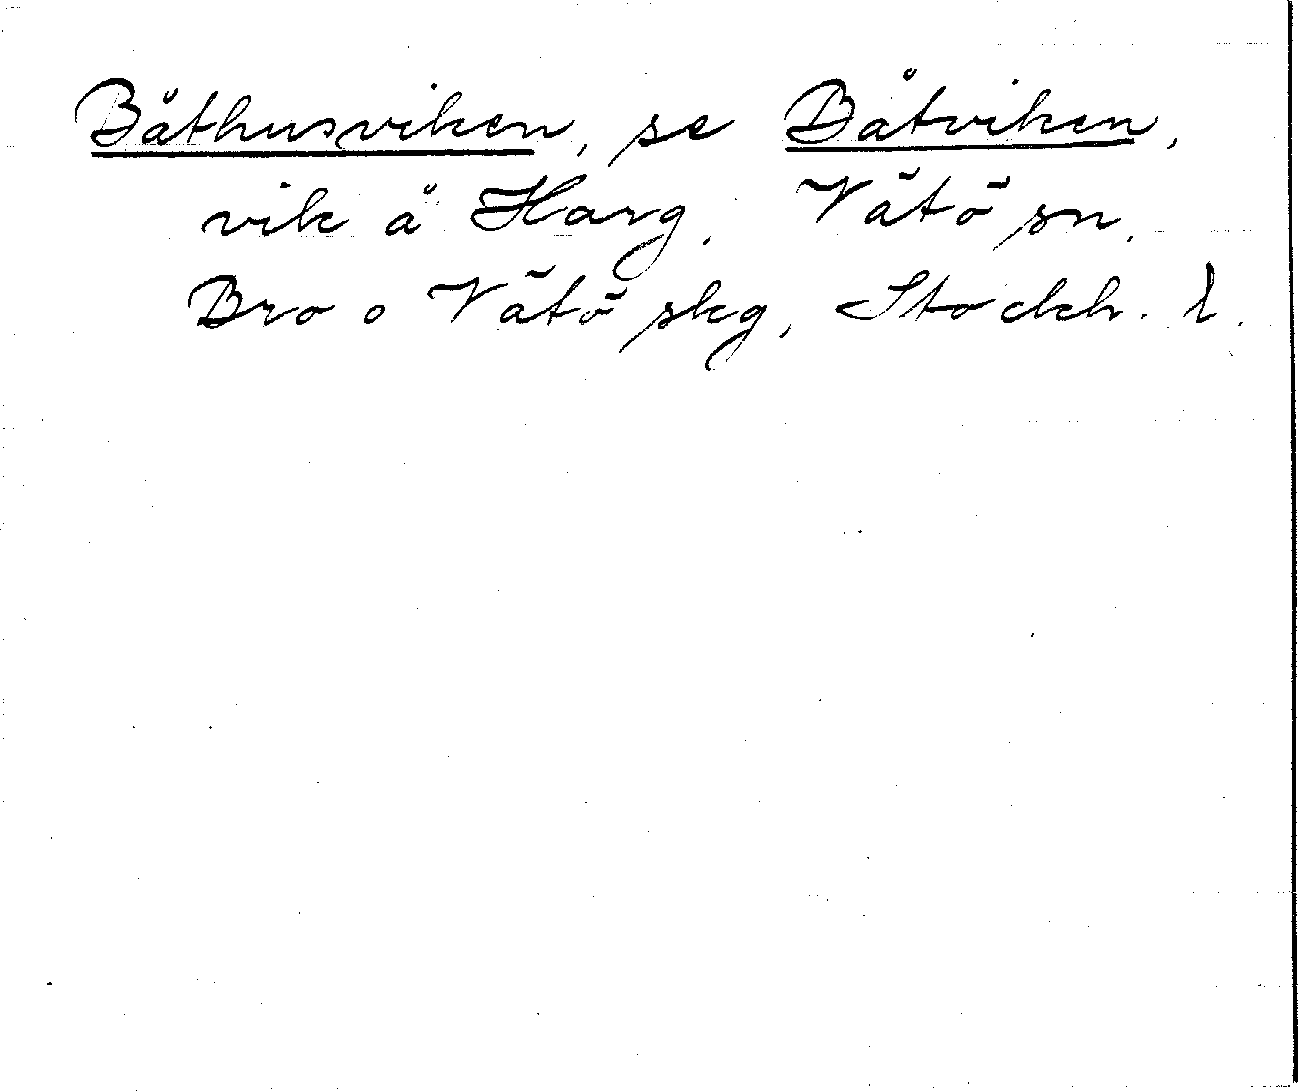 Båthusviken, se Båtviken,
vik å Harg. Vätö sn.
Bro o Vätö skg, Stockh. l.